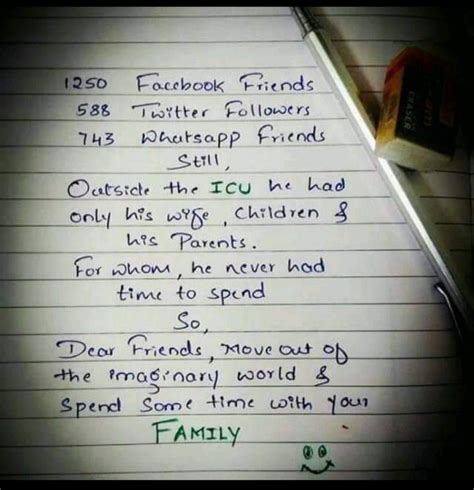 1250 Facebook Friends
588 Twitter Followers
743 Whatsapp Friends
Still,
Outside the ICU he had
only his wife, Children &
his Parents.
For whom, he never had
time to spend
So,
Dear Friends, Move out of
the imaginary world &
Spend Some time with your
FAMILY
ERASER